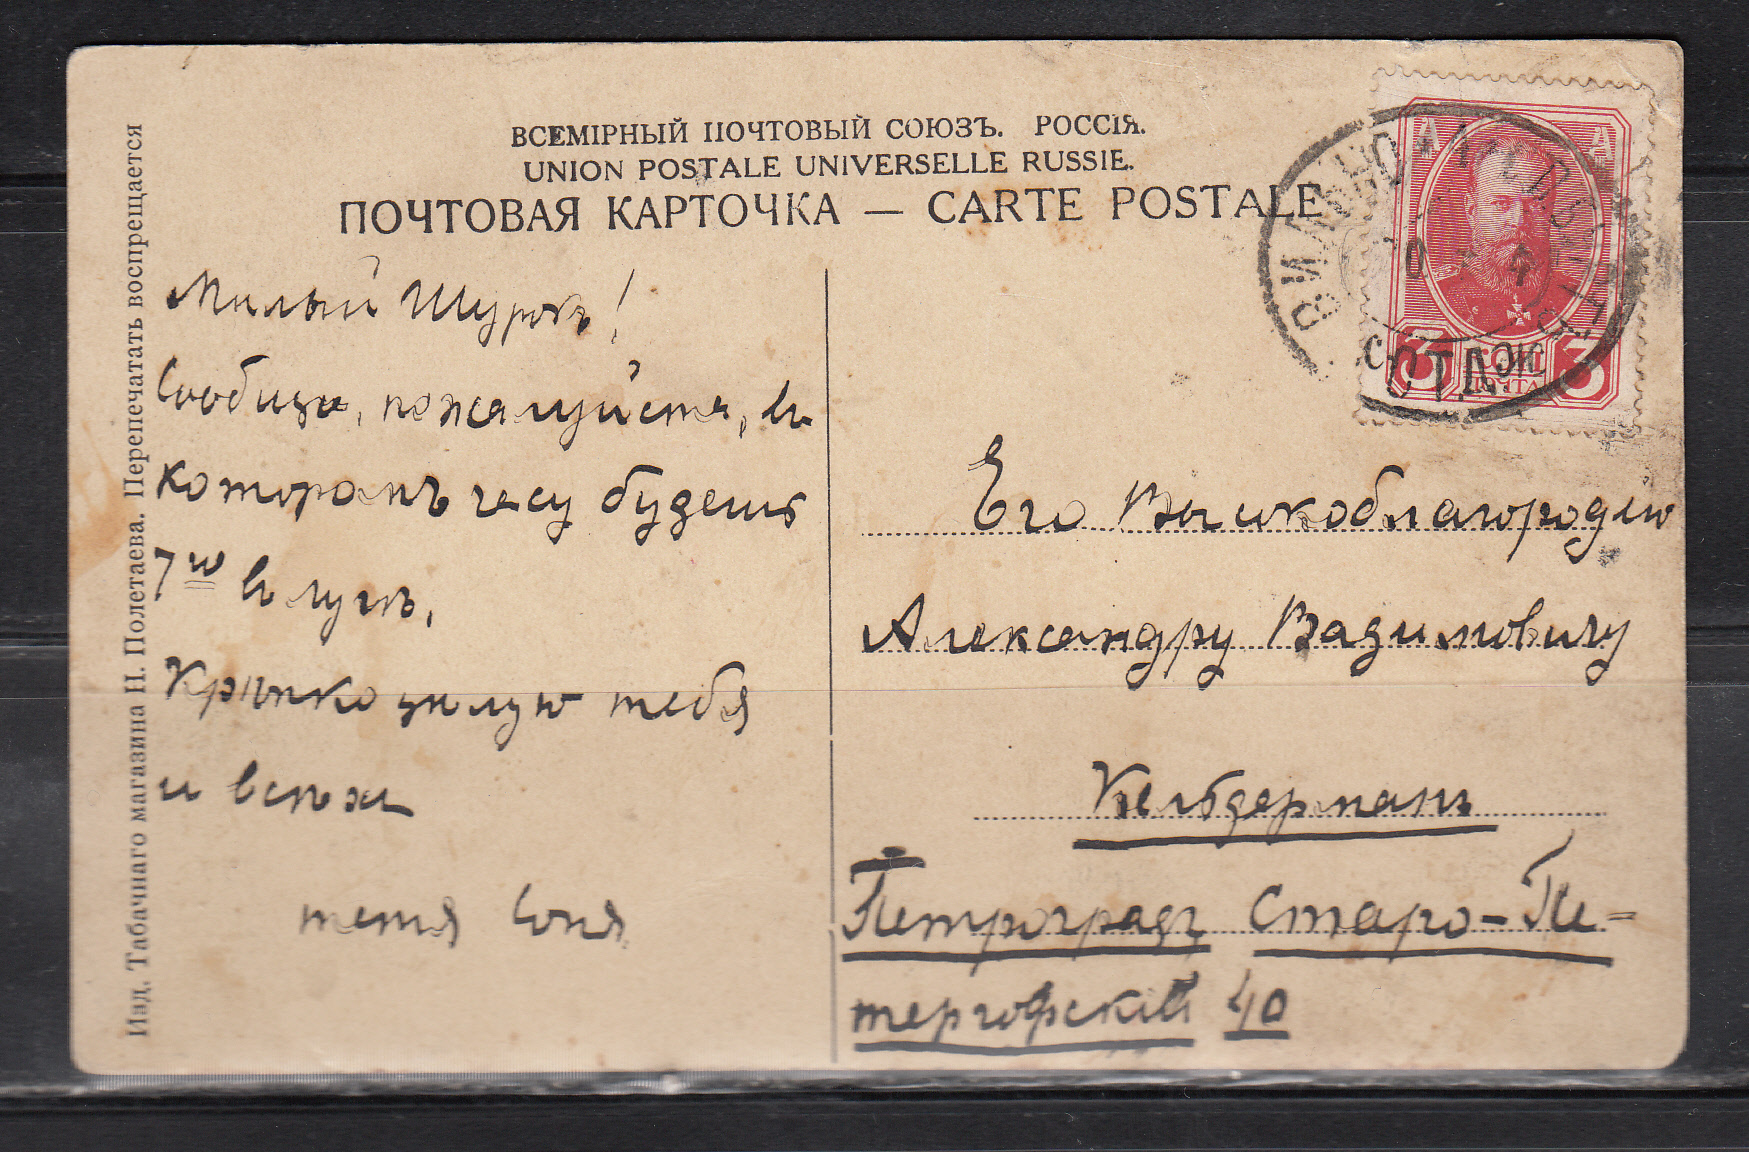 ВСЕМІРНЫЙ ПОЧТОВЫЙ СОЮЗЪ. РОССІЯ.
UNION POSTALE UNIVERSELLE RUSSIE.
ПОЧТОВАЯ КАРТОЧКА — CARTE POSTALE
Изд. Табачнаго магазина Н. Полетаева. Перепечатать воспрещается
Милый Шурокъ!
Сообщи, пожалуйста, въ
которомъ часу будешь
7го въ лугѣ.
Крѣпко цѣлую тебя
и всѣхъ
тетя Соня
3 КОП 3
ПОЧТА
Его Высокоблагородію
Александру Вадимовичу
Кельдерманъ
Петроградъ Старо-Пе-
тергофскій 40